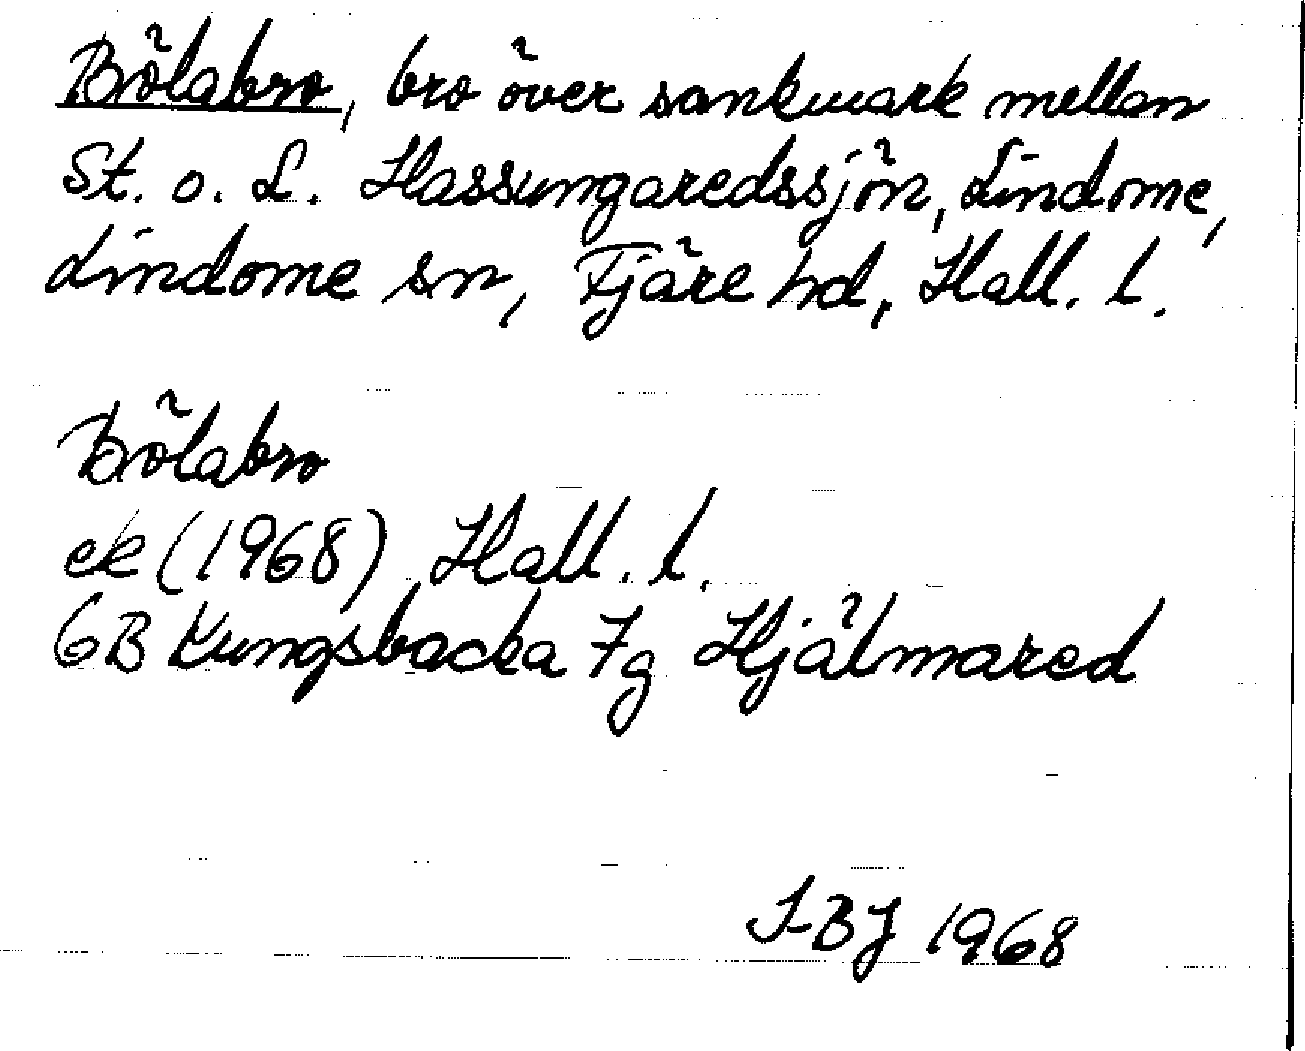 Bölabro, bro över sankmark mellan
St. o. L. Hassungaredssjön, Lindome,
Lindome sn, Fjäre hd, Hall. l.
Bölabro
ek (1968) Hall. l.
6B Kungsbacka 7g Hjälmared
I-BJ 1968